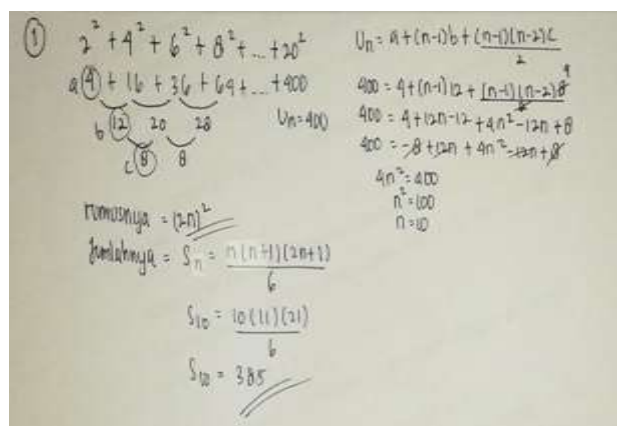 ① 2² + 4² + 6² + 8² + ... + 20²
a ④ + 16 + 36 + 64 + ... + 400
b ⑫ 20 28
Un = 400
c ⑧ 8
rumusnya = (2n)²
Jumlahnya = Sn = n(n+1)(2n+1) / 6
S10 = 10(11)(21) / 6
S10 = 385
Un = a + (n-1)b + (n-1)(n-2)c / 2
400 = 4 + (n-1)12 + (n-1)(n-2)8 4 / 2
400 = 4 + 12n - 12 + 4n² - 12n + 8
400 = -8 + 12n + 4n² - 12n + 8
4n² = 400
n² = 100
n = 10